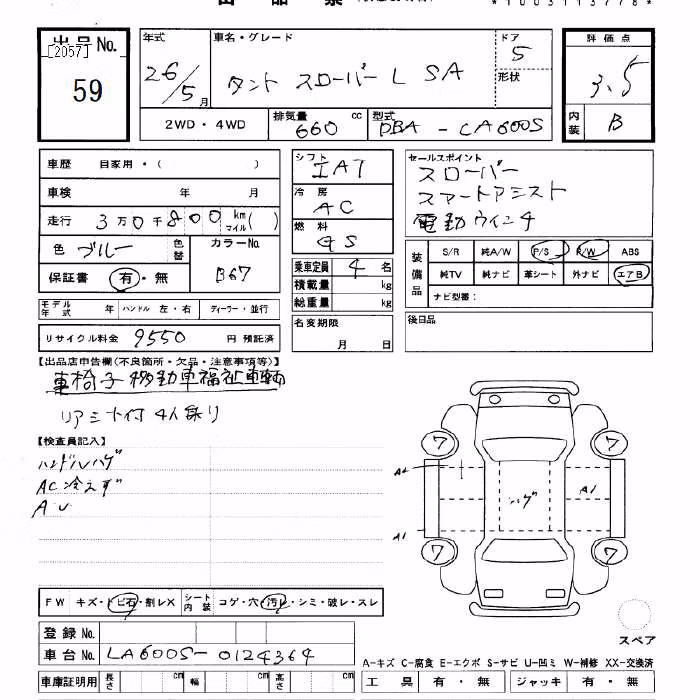 出品No.
[2057]
59
年式
26/5月
車名・グレード
タント スローパー L SA
ドア
5
形状
評価点
3.5
内装
B
2WD・4WD
排気量
660 cc
型式
DBA - LA600S
車歴 自家用・( )
車検 年 月
走行 3万0千800 km マイル( )
色 ブルー 色替
カラーNo. B67
保証書 有・無
モデル年式 年 ハンドル 左・右 ディーラー・並行
リサイクル料金 9550 円 預託済
シフト
IAT
冷房
AC
燃料
GS
乗車定員 4 名
積載量 kg
総重量 kg
名変期限
月 日
セールスポイント
スローパー
スマートアシスト
電動ウインチ
装備品
S/R 純A/W P/S P/W ABS
純TV 純ナビ 革シート 外ナビ エアB
ナビ型番:
後日品
【出品店申告欄(不良箇所・欠品・注意事項等)】
車椅子移動車福祉車輌
リアシート付 4人乗り
【検査員記入】
ハンドルハゲ
AC冷えず
A U
7
7
A2
ハゲ
A1
A1
7
7
スペア
FW キズ・トビ石・割レX
シート内装 コゲ・穴・汚レ・シミ・破レ・スレ
登録No.
車台No. LA600S-0124364
車庫証明用 長さ cm 幅 cm 高さ cm
A-キズ C-腐食 E-エクボ S-サビ U-凹ミ W-補修 XX-交換済
工具 有・無 ジャッキ 有・無